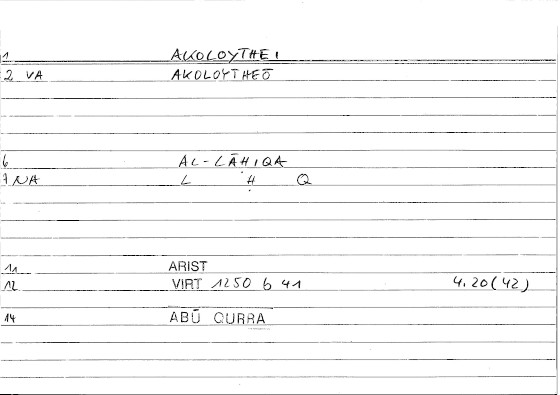 1 AKOLOYTHEI
2 VA AKOLOYTHEŌ
6 AL-LĀḤIQA
7 NA L Ḥ Q
11 ARIST
12 VIRT 1250 b 41 4.20(42)
14 ABŪ QURRA